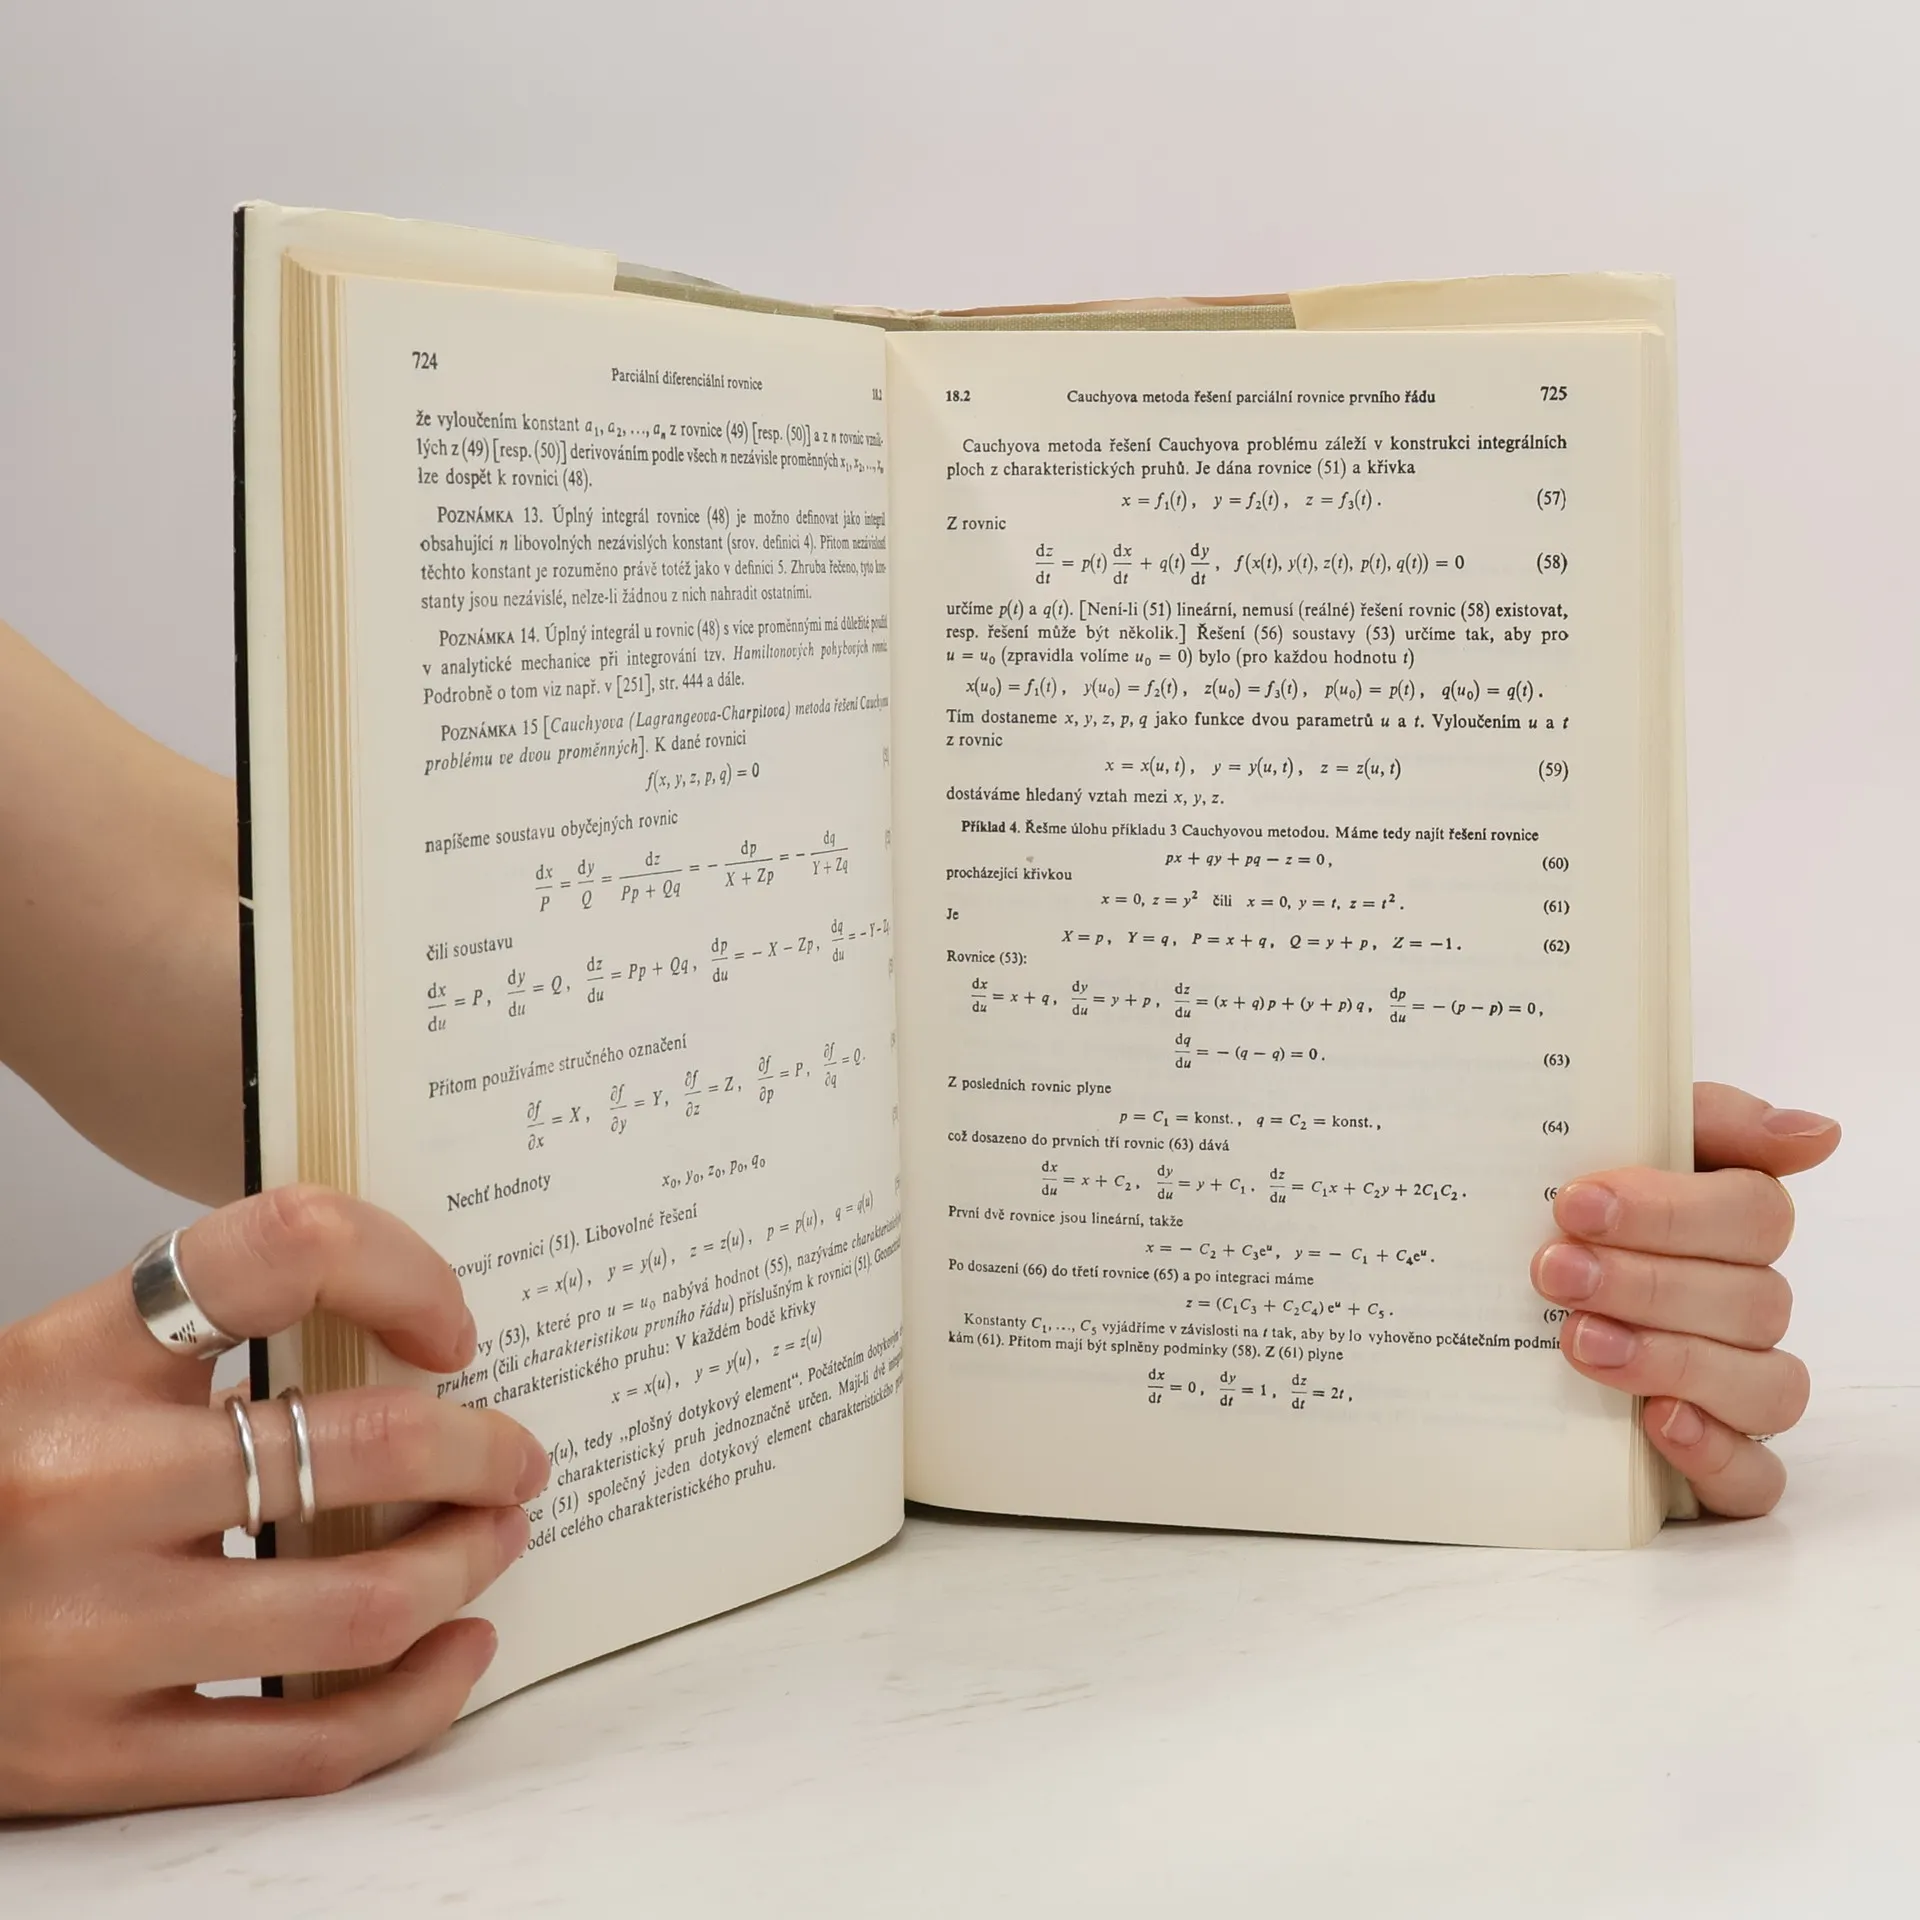 724
Parciální diferenciální rovnice
18.2
že vyloučením konstant a₁, a₂, ..., aₙ z rovnice (49) [resp. (50)] a z n rovnic vznik-
lých z (49) [resp. (50)] derivováním podle všech n nezávisle proměnných x₁, x₂, ..., xₙ
lze dospět k rovnici (48).
POZNÁMKA 13. Úplný integrál rovnice (48) je možno definovat jako integrál
obsahující n libovolných nezávislých konstant (srov. definici 4). Přitom nezávislost
těchto konstant je rozuměno právě totéž jako v definici 5. Zhruba řečeno, tyto kon-
stanty jsou nezávislé, nelze-li žádnou z nich nahradit ostatními.
POZNÁMKA 14. Úplný integrál u rovnic (48) s více proměnnými má důležité použití
v analytické mechanice při integrování tzv. Hamiltonových pohybových rovnic.
Podrobně o tom viz např. v [251], str. 444 a dále.
POZNÁMKA 15 [Cauchyova (Lagrangeova-Charpitova) metoda řešení Cauchyova
problému ve dvou proměnných]. K dané rovnici
f(x, y, z, p, q) = 0
napíšeme soustavu obyčejných rovnic
dx/P = dy/Q = dz/(Pp + Qq) = − dp/(X + Zp) = − dq/(Y + Zq)
čili soustavu
dx/du = P, dy/du = Q, dz/du = Pp + Qq, dp/du = − X − Zp, dq/du = − Y − Zq
Přitom používáme stručného označení
∂f/∂x = X, ∂f/∂y = Y, ∂f/∂z = Z, ∂f/∂p = P, ∂f/∂q = Q.
Nechť hodnoty
x₀, y₀, z₀, p₀, q₀
hovují rovnici (51). Libovolné řešení
x = x(u), y = y(u), z = z(u), p = p(u), q = q(u)
vy (53), které pro u = u₀ nabývá hodnot (55), nazýváme charakteristickým
pruhem (čili charakteristikou prvního řádu) příslušným k rovnici (51).
am charakteristického pruhu: V každém bodě křivky
x = x(u), y = y(u), z = z(u)
q(u), tedy „plošný dotykový element“. Počátečním dotykovým
charakteristický pruh jednoznačně určen. Mají-li dvě
ice (51) společný jeden dotykový element charakteristického
odél celého charakteristického pruhu.
18.2
Cauchyova metoda řešení parciální rovnice prvního řádu
725
Cauchyova metoda řešení Cauchyova problému záleží v konstrukci integrálních
ploch z charakteristických pruhů. Je dána rovnice (51) a křivka
x = f₁(t), y = f₂(t), z = f₃(t). (57)
Z rovnic
dz/dt = p(t) dx/dt + q(t) dy/dt, f(x(t), y(t), z(t), p(t), q(t)) = 0 (58)
určíme p(t) a q(t). [Není-li (51) lineární, nemusí (reálné) řešení rovnic (58) existovat,
resp. řešení může být několik.] Řešení (56) soustavy (53) určíme tak, aby pro
u = u₀ (zpravidla volíme u₀ = 0) bylo (pro každou hodnotu t)
x(u₀) = f₁(t), y(u₀) = f₂(t), z(u₀) = f₃(t), p(u₀) = p(t), q(u₀) = q(t).
Tím dostaneme x, y, z, p, q jako funkce dvou parametrů u a t. Vyloučením u a t
z rovnic
x = x(u, t), y = y(u, t), z = z(u, t) (59)
dostáváme hledaný vztah mezi x, y, z.
Příklad 4. Řešme úlohu příkladu 3 Cauchyovou metodou. Máme tedy najít řešení rovnice
px + qy + pq − z = 0, (60)
procházející křivkou
x = 0, z = y² čili x = 0, y = t, z = t². (61)
Je
X = p, Y = q, P = x + q, Q = y + p, Z = −1. (62)
Rovnice (53):
dx/du = x + q, dy/du = y + p, dz/du = (x + q) p + (y + p) q, dp/du = − (p − p) = 0,
dq/du = − (q − q) = 0. (63)
Z posledních rovnic plyne
p = C₁ = konst., q = C₂ = konst., (64)
což dosazeno do prvních tří rovnic (63) dává
dx/du = x + C₂, dy/du = y + C₁, dz/du = C₁x + C₂y + 2C₁C₂. (6
První dvě rovnice jsou lineární, takže
x = − C₂ + C₃eᵘ, y = − C₁ + C₄eᵘ.
Po dosazení (66) do třetí rovnice (65) a po integraci máme
z = (C₁C₃ + C₂C₄) eᵘ + C₅. (67)
Konstanty C₁, ..., C₅ vyjádříme v závislosti na t tak, aby bylo vyhověno počátečním podmín
kám (61). Přitom mají být splněny podmínky (58). Z (61) plyne
dx/dt = 0, dy/dt = 1, dz/dt = 2t,